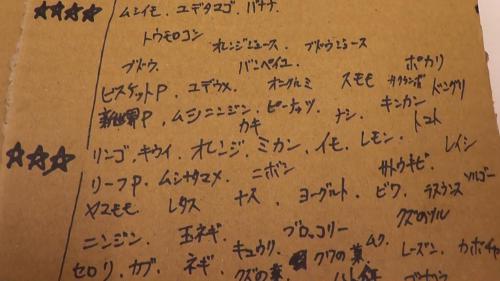 ★★★★ ムシイモ、ユデタマゴ、バナナ
トウモロコシ オレンジジュース、ブドウジュース
ブドウ、 バンペイユ、 ポカリ
ビスケットP、ユデウメ、オニグルミ スモモ サクランボ ドングリ
新世界P、ムシニンジン、ピーナッツ、ナシ、キンカン
カキ トマト
★★★ リンゴ、キウイ、オレンジ、ミカン、イモ、レモン、 レイシ
リーフP、ムシサヤマメ、ニボシ サトウキビ
ヤマモモ、レタス ナス、ヨーグルト、ビワ、 ソルゴー
ニンジン、玉ネギ、ブロッコリー クズのツル
セロリ、カブ、ネギ、キュウリ、 クワの葉、ムク、レーズン、カボチャ
クズの葉、